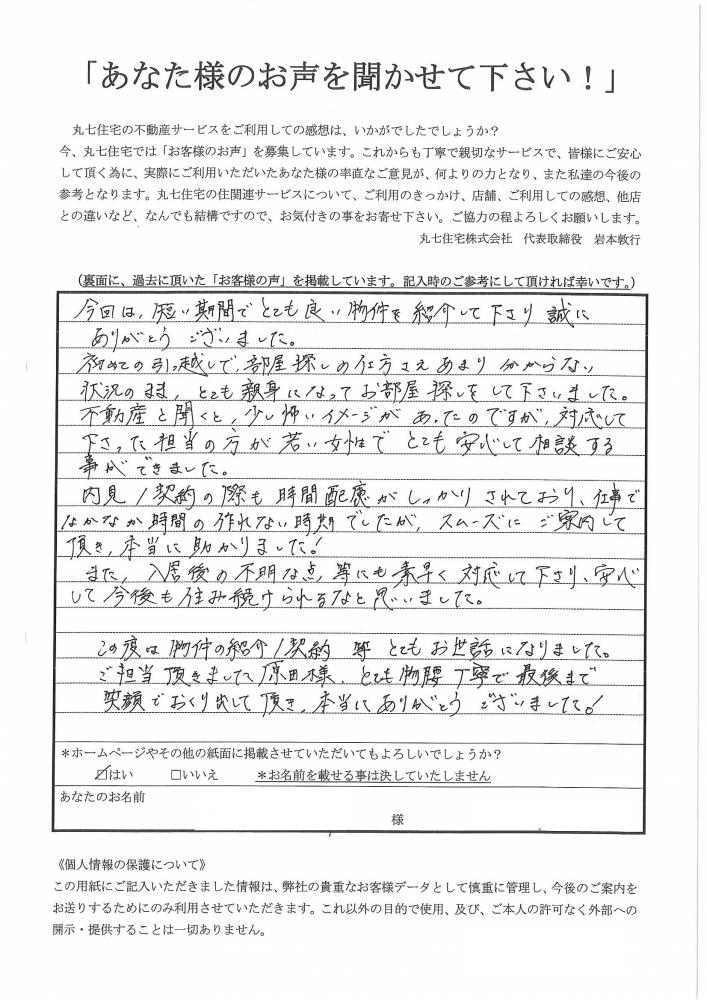 「あなた様のお声を聞かせて下さい！」
丸七住宅の不動産サービスをご利用しての感想は、いかがでしたでしょうか？
今、丸七住宅では「お客様のお声」を募集しています。これからも丁寧で親切なサービスで、皆様にご安心
して頂く為に、実際にご利用いただいたあなた様の率直なご意見が、何よりの力となり、また私達の今後の
参考となります。丸七住宅の住関連サービスについて、ご利用のきっかけ、店舗、ご利用しての感想、他店
との違いなど、なんでも結構ですので、お気付きの事をお寄せ下さい。ご協力の程よろしくお願いします。
丸七住宅株式会社　代表取締役　岩本敦行
（裏面に、過去に頂いた「お客様の声」を掲載しています。記入時のご参考にして頂ければ幸いです。）
今回は、短い期間でとても良い物件を紹介して下さり誠に
ありがとうございました。
初めての引っ越しで、部屋探しの仕方さえあまり分からない
状況のまま、とても親身になってお部屋探しをして下さいました。
不動産と聞くと、少し怖いイメージがあったのですが、対応して
下さった担当の方が若い女性でとても安心して相談する
事ができました。
内見/契約の際も時間配慮がしっかりされており、仕事で
なかなか時間の作れない時期でしたが、スムーズにご案内して
頂き、本当に助かりました!
また、入居後の不明な点等にも素早く対応して下さり、安心
して今後も住み続けられるなと思いました。
この度は物件の紹介/契約　等とてもお世話になりました。
ご担当頂きました原田様、とても物腰丁寧で最後まで
笑顔でおくり出して頂き、本当にありがとうございました!
＊ホームページやその他の紙面に掲載させていただいてもよろしいでしょうか？
☑はい　□いいえ　＊お名前を載せる事は決していたしません
あなたのお名前
様
《個人情報の保護について》
この用紙にご記入いただきました情報は、弊社の貴重なお客様データとして慎重に管理し、今後のご案内を
お送りするためにのみ利用させていただきます。これ以外の目的で使用、及び、ご本人の許可なく外部への
開示・提供することは一切ありません。